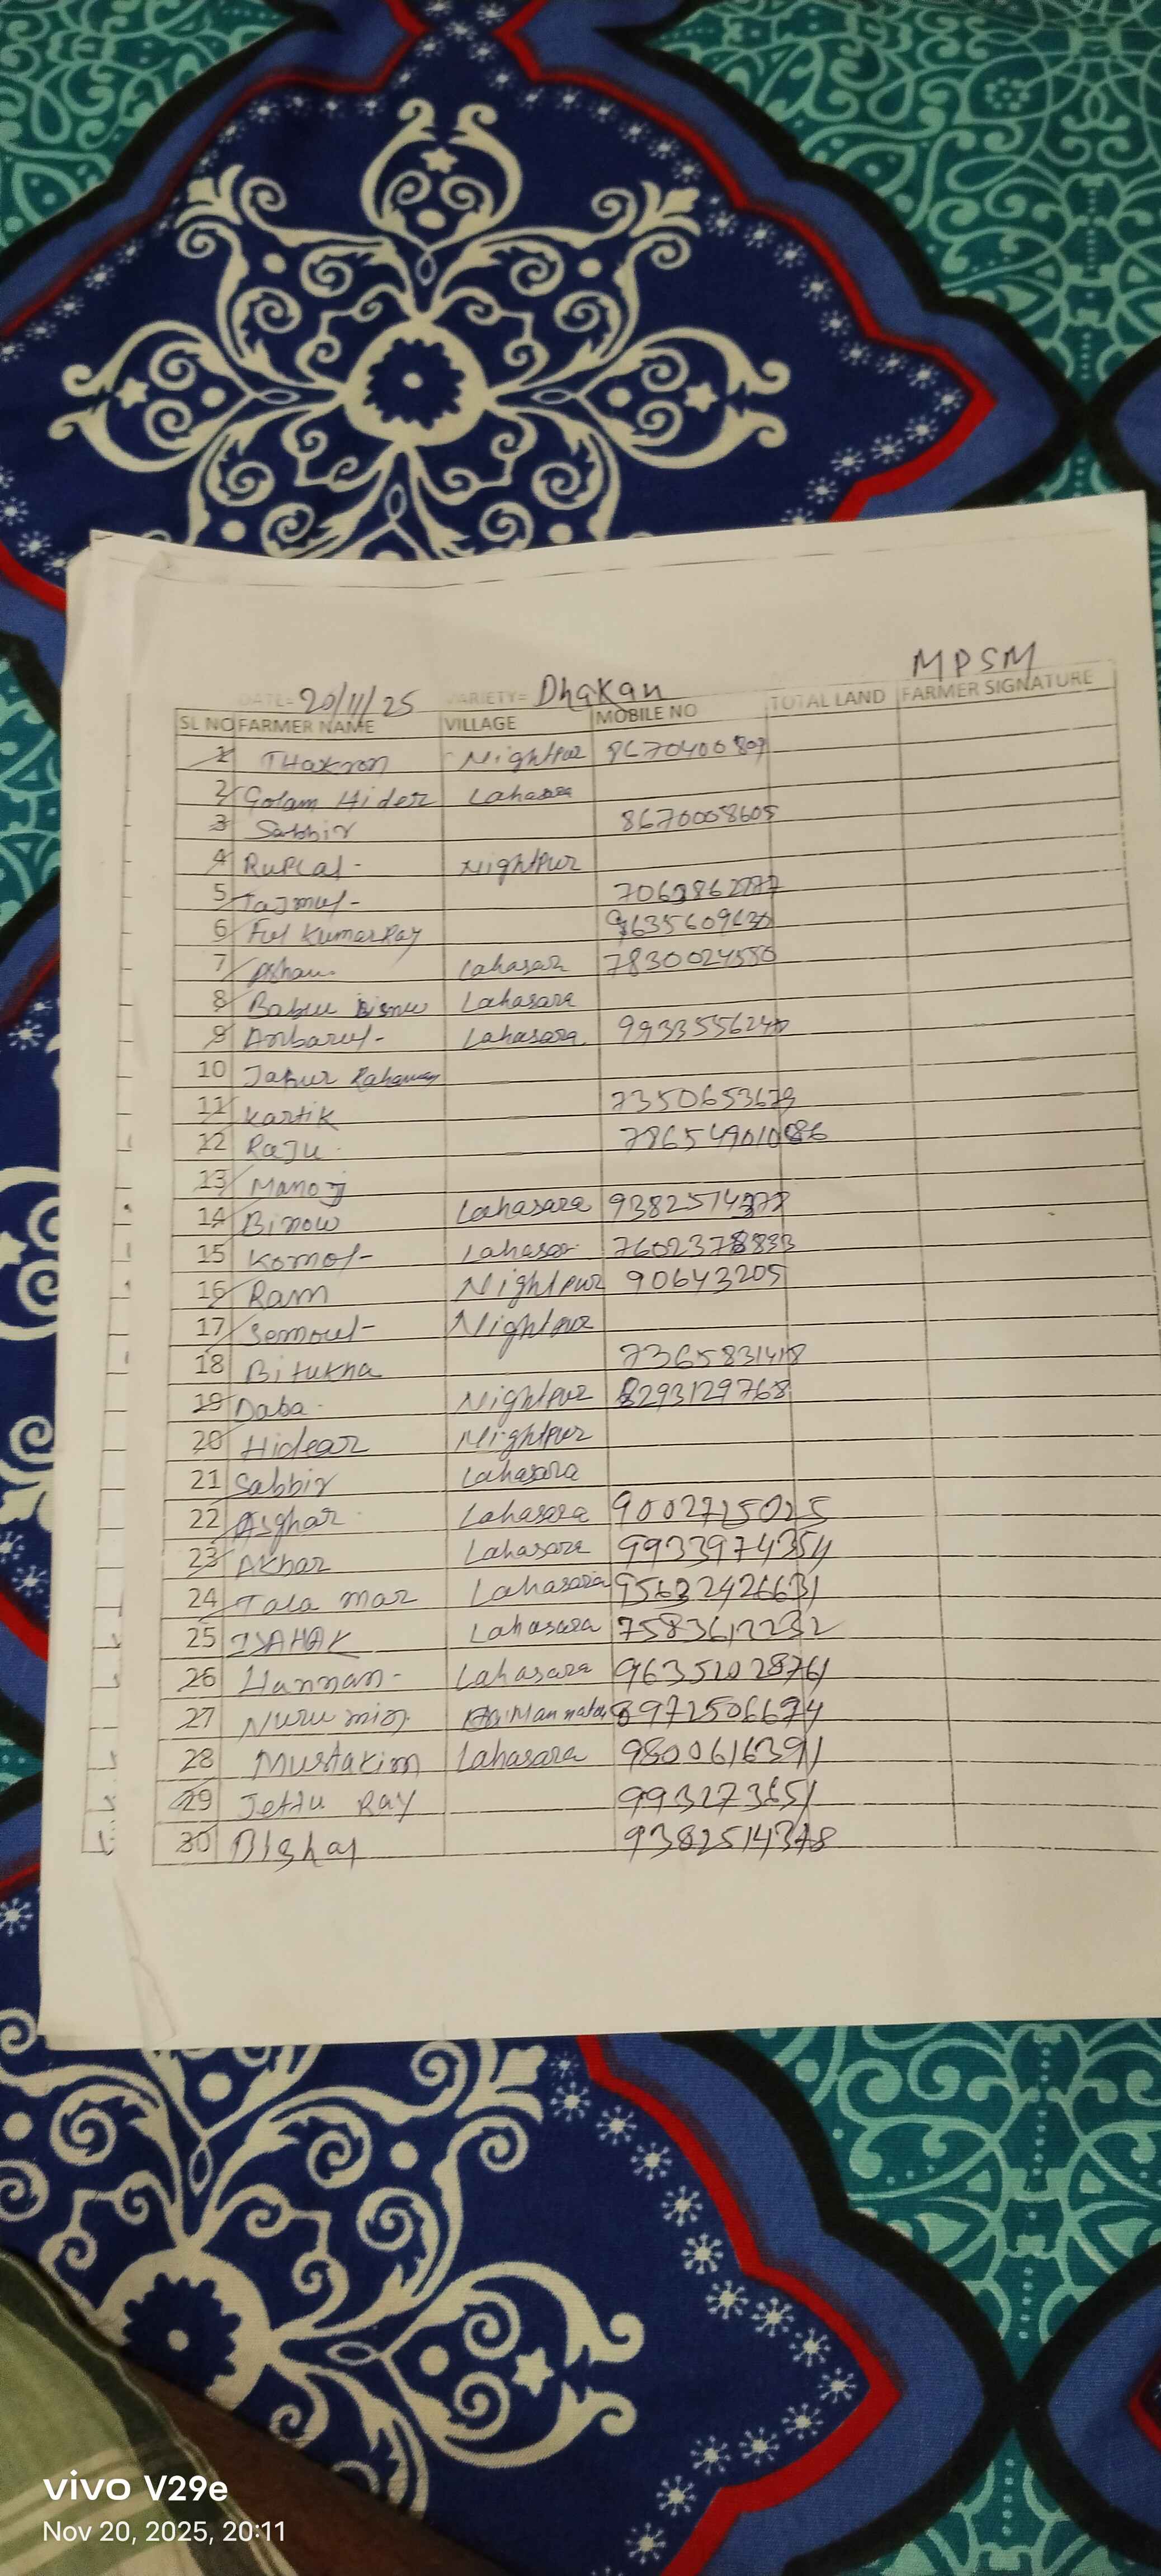 MPSM
DATE= 20/11/25 VARIETY= Dhakan
SL NO FARMER NAME VILLAGE MOBILE NO TOTAL LAND FARMER SIGNATURE
1 THakron Nightpur 8670400809
2 Golam Hider Lahasara
3 Sabbir 8670008605
4 Ruplal- Nightpur
5 Tajmul-
6 Ful Kumar Ray
7 Lahasar 7830024550
8 Babu Lahasara
9 Anbarul- Lahasara 9933556240
10 Jabur Rahaman
11 Kartik 7350653679
12 Raju
13 Manoj
14 Binow Lahasara
15 Komol- Lahasar
16 Ram Nightpur 90643205
17 Semoul- Nightpur
18 Bitukna
19 Daba Nightpur 8293129768
20 Hidear Nightpur
21 Sabbir Lahasara
22 Asghar Lahasara 9002725025
23 Akbar Lahasara 9933974354
24 Tala mar Lahasara
25 ISAHAK Lahasara 7583612232
26 Hannan- Lahasara 9635202876
27 Nuru mia 8972506674
28 Mustakim Lahasara 9800616391
29 Jettu Ray 993273651
30 Bishal 9382514378
vivo V29e
Nov 20, 2025, 20:11